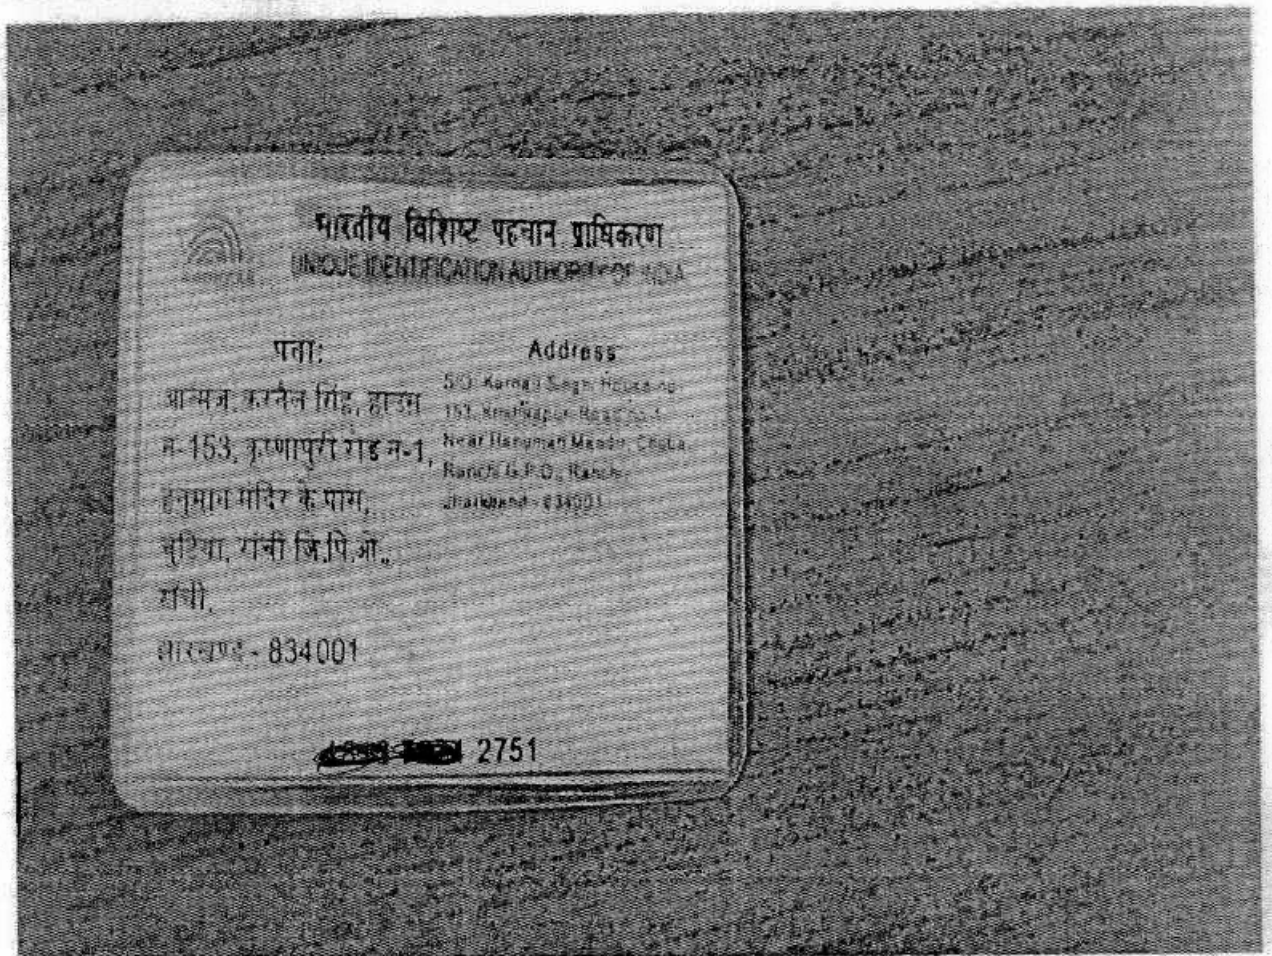 भारतीय विशिष्ट पहचान प्राधिकरण
UNIQUE IDENTIFICATION AUTHORITY OF INDIA
पता:
आत्मज, करनैल सिंह, हाउस
न-153, कृष्णापुरी रोड न-1,
हनुमान मंदिर के पास,
चुटिया, रांची जि.पि.ओ.,
रांची,
झारखण्ड - 834001
Address
S/O Karnail Singh, House no
153, Road no 1
Near Hanuman Mandir,
Ranchi G.P.O., Ranchi
Jharkhand - 834001
2751